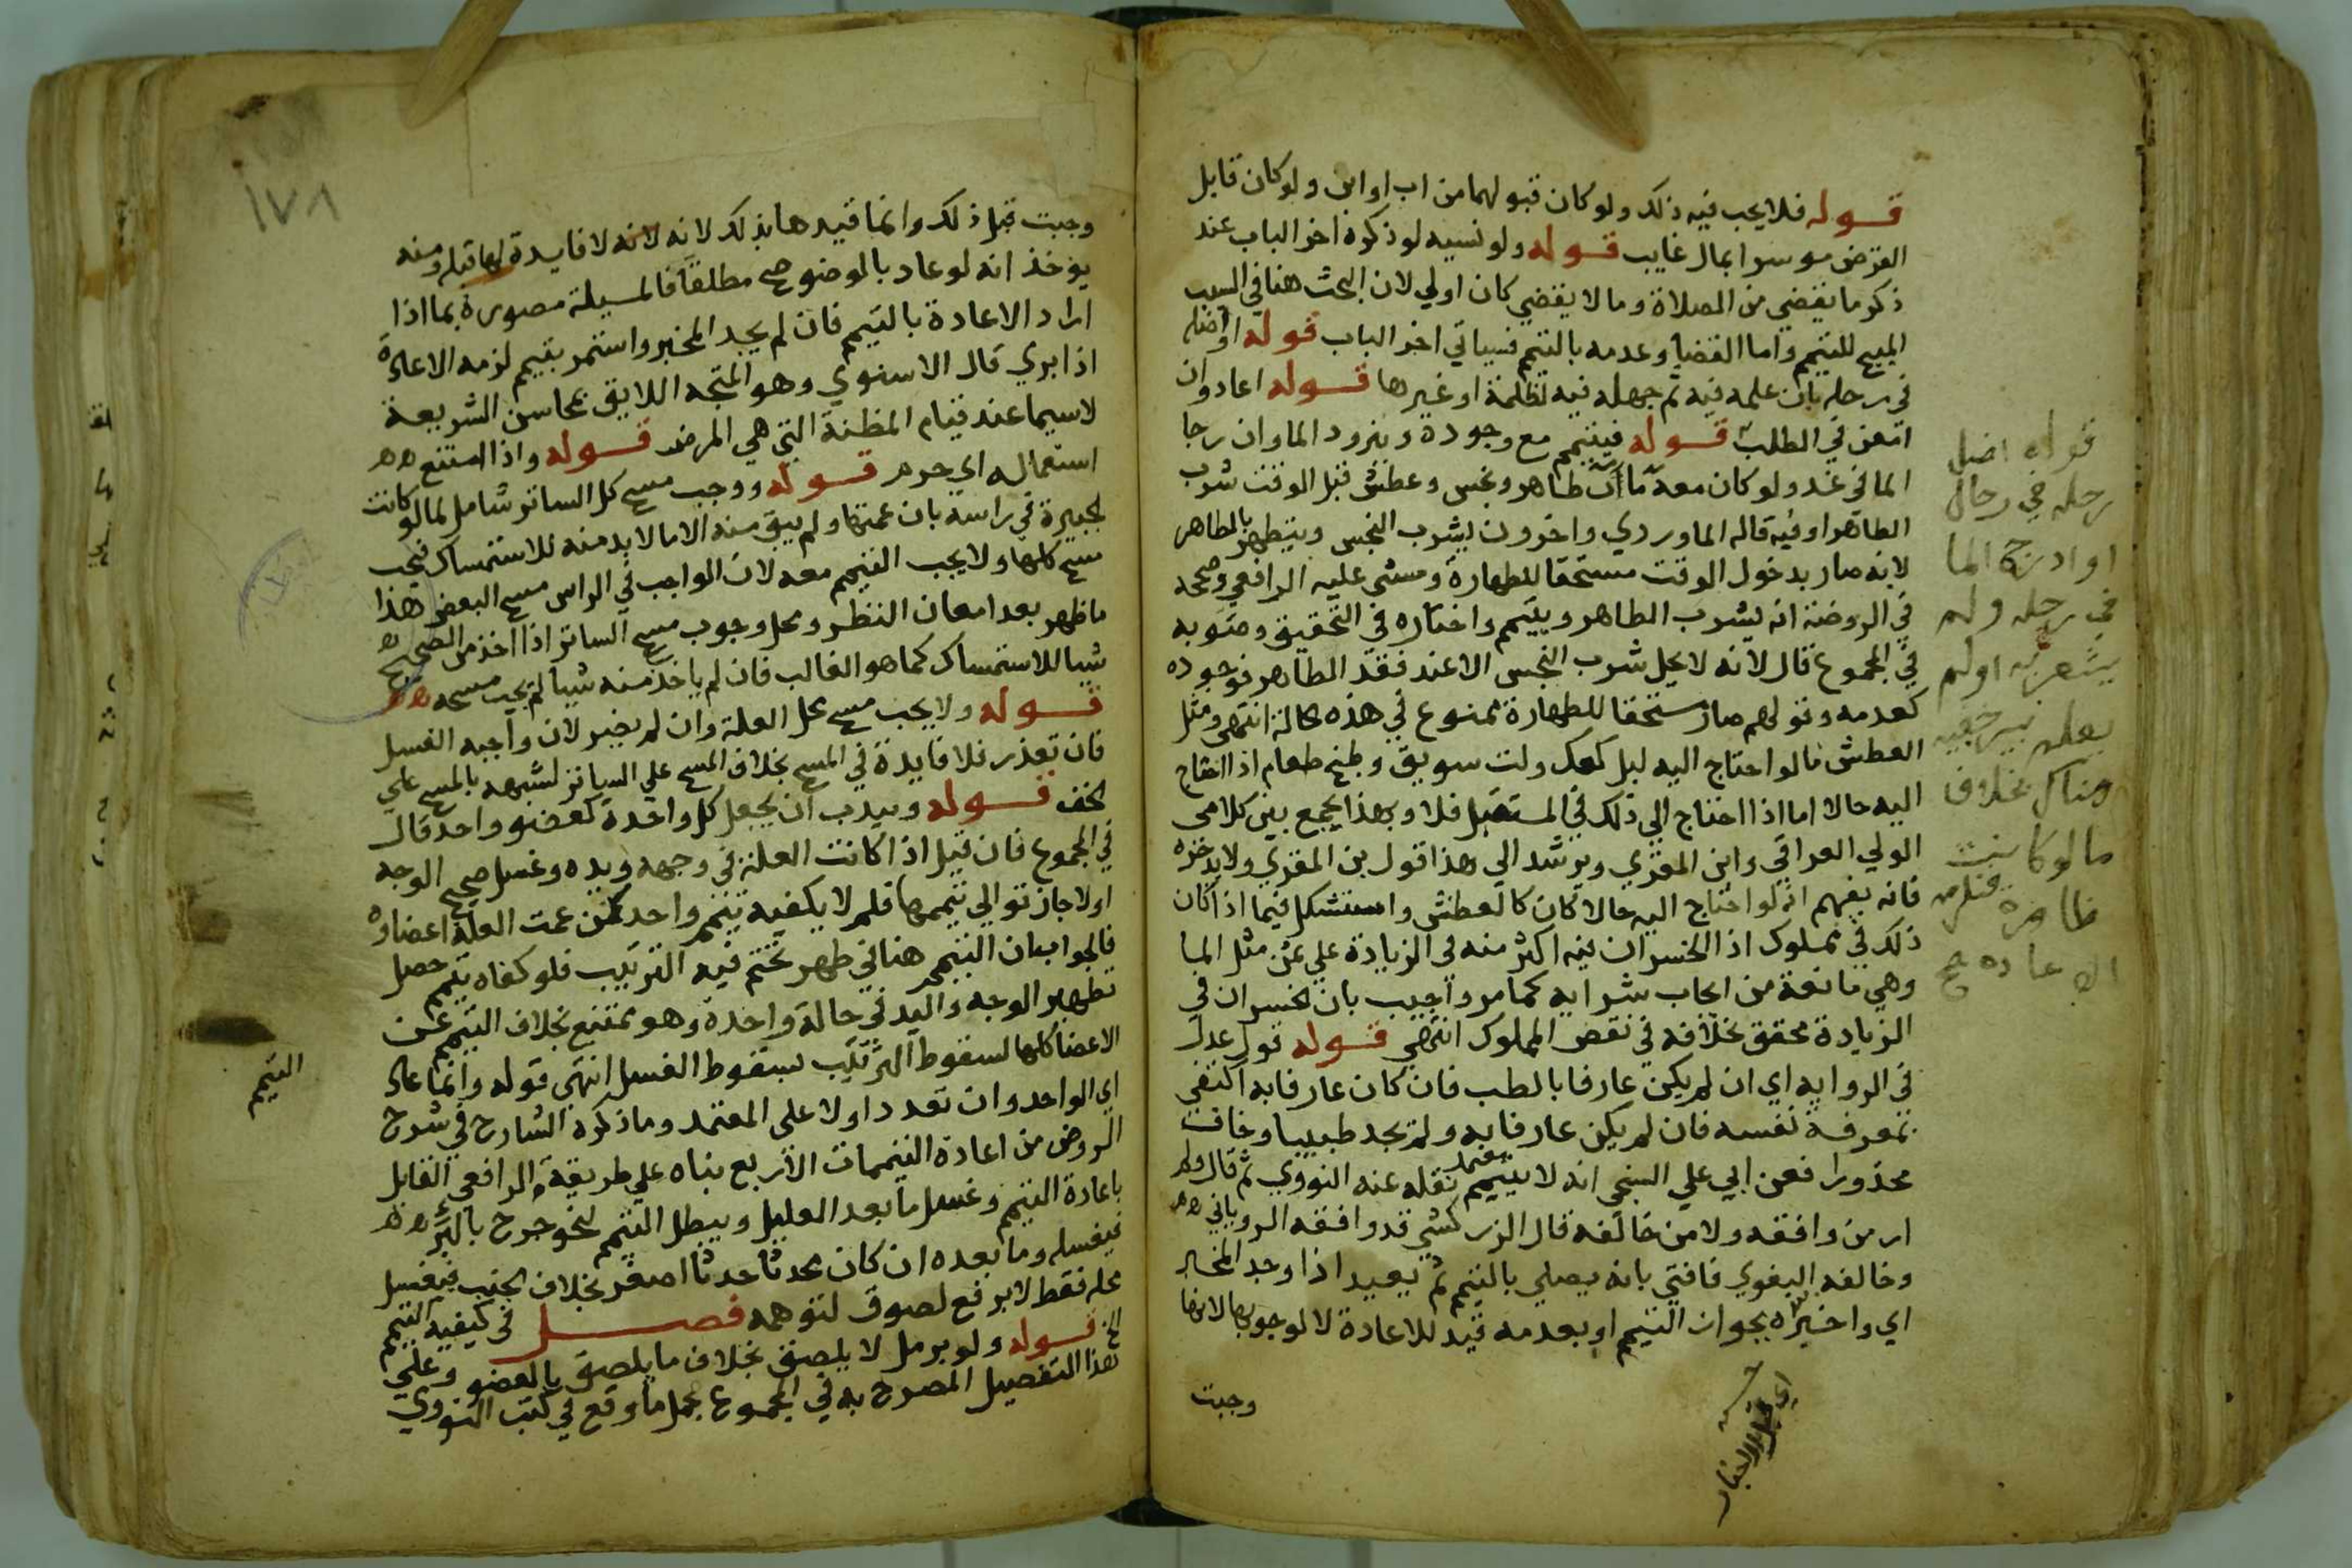 قوله فلا يجب فيه ذلك ولو كان قبولهما من اب او ابن ولو كان قابل
القرض موسرا بمال غايب قوله ولو نسيه لو ذكره اخر الباب عند
ذكر ما يقضي من الصلاة وما لا يقضي كان اولي لان البحث هنا في السبب
المبيح للتيمم واما القضا وعدمه بالتيمم فسياتي اخر الباب قوله او اضله
في رحله بان علمه فيه ثم جهله فيه لظلمة او غيرها قوله اعاد وان
امعن في الطلب قوله فيتيمم مع وجوده وينزود الما وان رجا
الما في غد ولو كان معه ماآن طاهر ونجس وعطش قبل الوقت شرب
الطاهر او فيه قاله الماوردي واخرون يشرب النجس ويتطهر بالطاهر
لانه صار بدخول الوقت مستحقا للطهارة ومشى عليه الرافعي وصحح
في الروضة انه يشرب الطاهر ويتيمم واختاره في التحقيق وصوبه
في المجموع قال لانه لا يحل شرب النجس الا عند فقد الطاهر فوجوده
كعدمه وقولهم صار مستحقا للطهارة ممنوع في هذه الحالة انتهى ومثل
العطش ما لو احتاج اليه لبل كعك ولت سويق وطبخ طعام اذا احتاج
اليه حالا اما اذا احتاج الي ذلك في المستقبل فلا وبهذا يجمع بين كلامي
الولي العراقي وابن المقري ويرشد الي هذا قول بن المقري ولا يدخره
فانه يفهم انه لو احتاج اليه حالا كان كالعطش واستشكل فيما اذا كان
ذلك في مملوك اذ الخسران فيه اكثر منه في الزيادة علي ثمن مثل الما
وهي مانعة من ايجاب شرايه كما مر واجيب بان الخسران في
الزيادة محقق بخلافه في نقص المملوك انتهى قوله قول عدل
في الروايه اي ان لم يكن عارفا بالطب فان كان عارفا به اكتفي
بمعرفة نفسه فان لم يكن عارفا به ولم يجد طبيبا وخاف
محذورا فعن ابي علي السنجي انه لا يتيمم نقله عنه النووي ثم قال ولم
معتمد
ار من وافقه ولا من خالفه قال الزركشي قد وافقه الروياني
وخالفه البغوي فافتي بانه يصلي بالتيمم ثم يعيد اذا وجد المخبر
اي واخبره بجواز التيمم او بعدمه قيد للاعادة لا لوجوبها لانها
وجبت
اي قبل الاخبار
قوله اضل
رحله في رحال
او ادرج الما
في رحله ولم
يشعر به اولم
يعلم ببير خفيه
هناك بخلاف
ما لو كانت
ظاهرة فتلزمه
الاعاده
وجبت قبل ذلك وانما قيدها بذلك لانه لانه لا فايدة لها قبله ومنه
يوخذ انه لو عاد بالوضو صح مطلقا فالمسيلة مصورة بما اذا
اراد الاعادة بالتيمم فان لم يجد المخبر واستمر بتيمم لزمه الاعادة
اذا بري قال الاسنوي وهو المتجه اللايق بمحاسن الشريعة
لاسيما عند قيام المظنة التي هي المرض قوله واذا امتنع
استعماله اي حرم قوله ووجب مسح كل الساتر شامل لما لو كانت
الجبيرة في راسه بان عمتها ولم يبق منه الا ما لا بد منه للاستمساك فيجب
مسح كلها ولا يجب التيمم معه لان الواجب في الراس مسح البعض هذا
ما ظهر بعد امعان النظر ومحل وجوب مسح الساتر اذا اخذ من الصحيح
شيا للاستمساك كما هو الغالب فان لم ياخذ منه شيا لم يجب مسحه
قوله ولا يجب مسح محل العلة وان لم يضر لان واجبه الغسل
فان تعذر فلا فايدة في المسح بخلاف المسح علي الساتر لشبهه بالمسح علي
الخف قوله ويندب ان يجعل كل واحدة كعضو واحد قال
في المجموع فان قيل اذا كانت العلة في وجهه ويده وغسل صحيح الوجه
اولا جاز توالي تيممهما فلم لا يكفيه تيمم واحد كمن عمت العلة اعضاوه
فالجواب ان التيمم هنا في طهر تحتم فيه الترتيب فلو كفاه تيمم حصل
تطهير الوجه واليد في حالة واحدة وهو ممتنع بخلاف التيمم عن
الاعضا كلها لسقوط الترتيب بسقوط الغسل انتهى قوله وانما عاد
اي الواحد وان تعدد اولا على المعتمد وما ذكره الشارح في شرح
الروض من اعادة التيممات الاربع بناه علي طريقة الرافعي القايل
باعادة التيمم وغسل ما بعد العليل ويبطل التيمم لنحو جرح بالبرء
فيغسله وما بعده ان كان محدثا حدثا اصغر بخلاف الجنب فيغسل
محله فقط لا برفع لصوق لتوهمه فصل في كيفية التيمم
الخ قوله ولو برمل لا يلصق بخلاف ما يلصق بالعضو وعلي
هذا التفصيل المصرح به في المجموع يحمل ما وقع في كتب النووي
التيمم
١٧٨